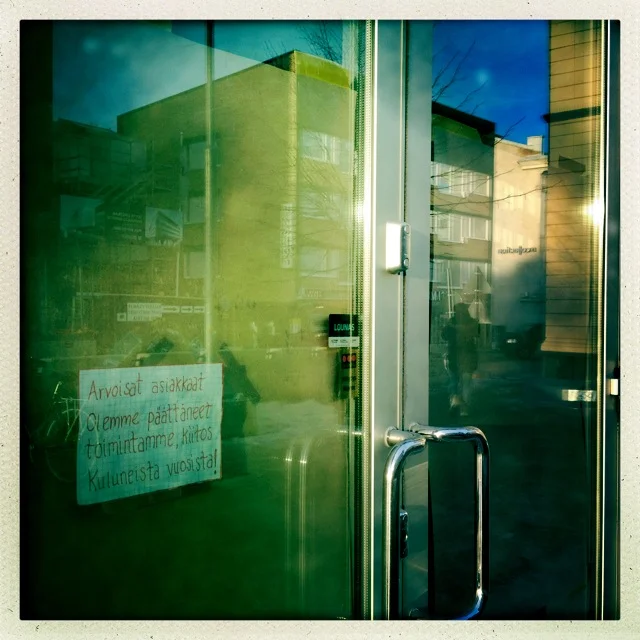 LOUNAS
Arvoisat asiakkaat
Olemme päättäneet
toimintamme, kiitos
Kuluneista vuosista!